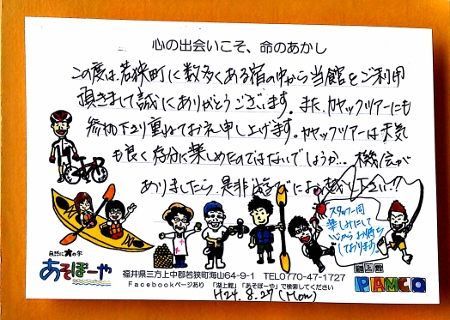 心の出会いこそ、命のあかし
この度は、若狭町に数多くある宿の中から当館をご利用
頂きまして誠にありがとうございます。また、カヤックツアーにも
参加下さり重ねてお礼申し上げます。カヤックツアーは天気
も良く存分に楽しめたのではないでしょうか… 機会が
ありましたら、是非遊びにお越し下さい!!
スタッフ一同
楽しみにして
心からお待ち
しております。
自然に育の字
あそぼーや
福井県三方上中郡若狭町海山64-9-1 TEL0770-47-1727
Facebookページあり 「湖上館」「あそぼーや」で検索してください。
湖上館
PAMCO
H24.8.27(Mon)